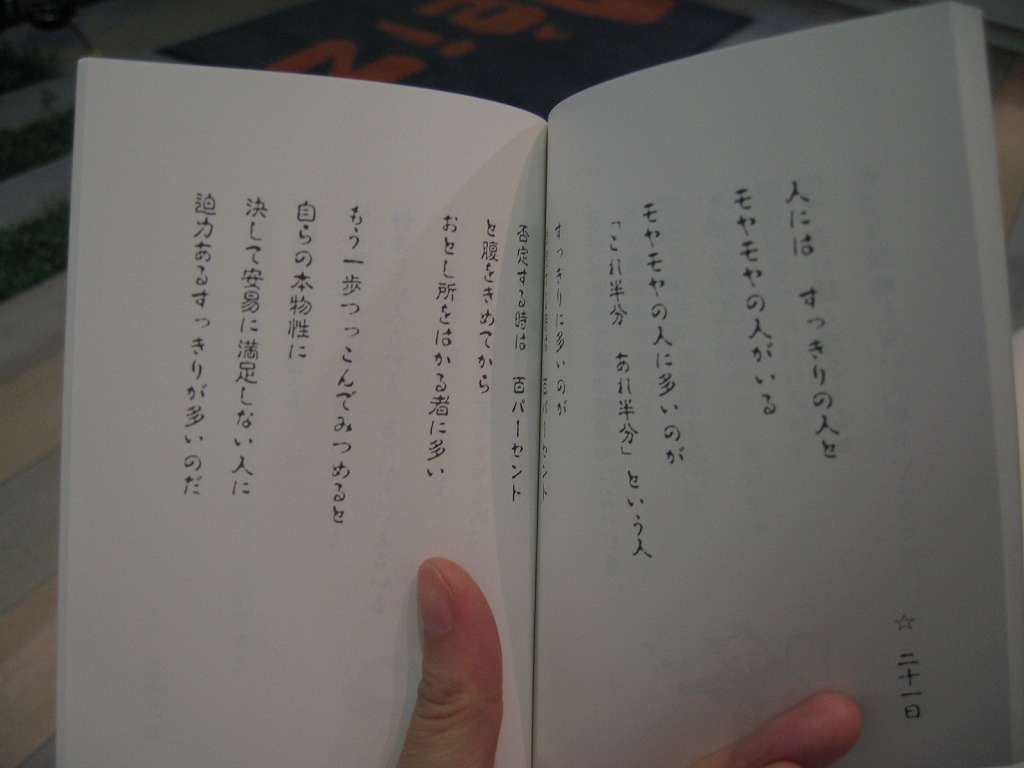 ☆ 二十一日
人には すっきりの人と
モヤモヤの人がいる
モヤモヤの人に多いのが
「これ半分 あれ半分」という人
すっきりに多いのが
否定する時は 百パーセント
と腹をきめてから
おとし所をはかる者に多い
もう一歩つっこんでみつめると
自らの本物性に
決して安易に満足しない人に
迫力あるすっきりが多いのだ